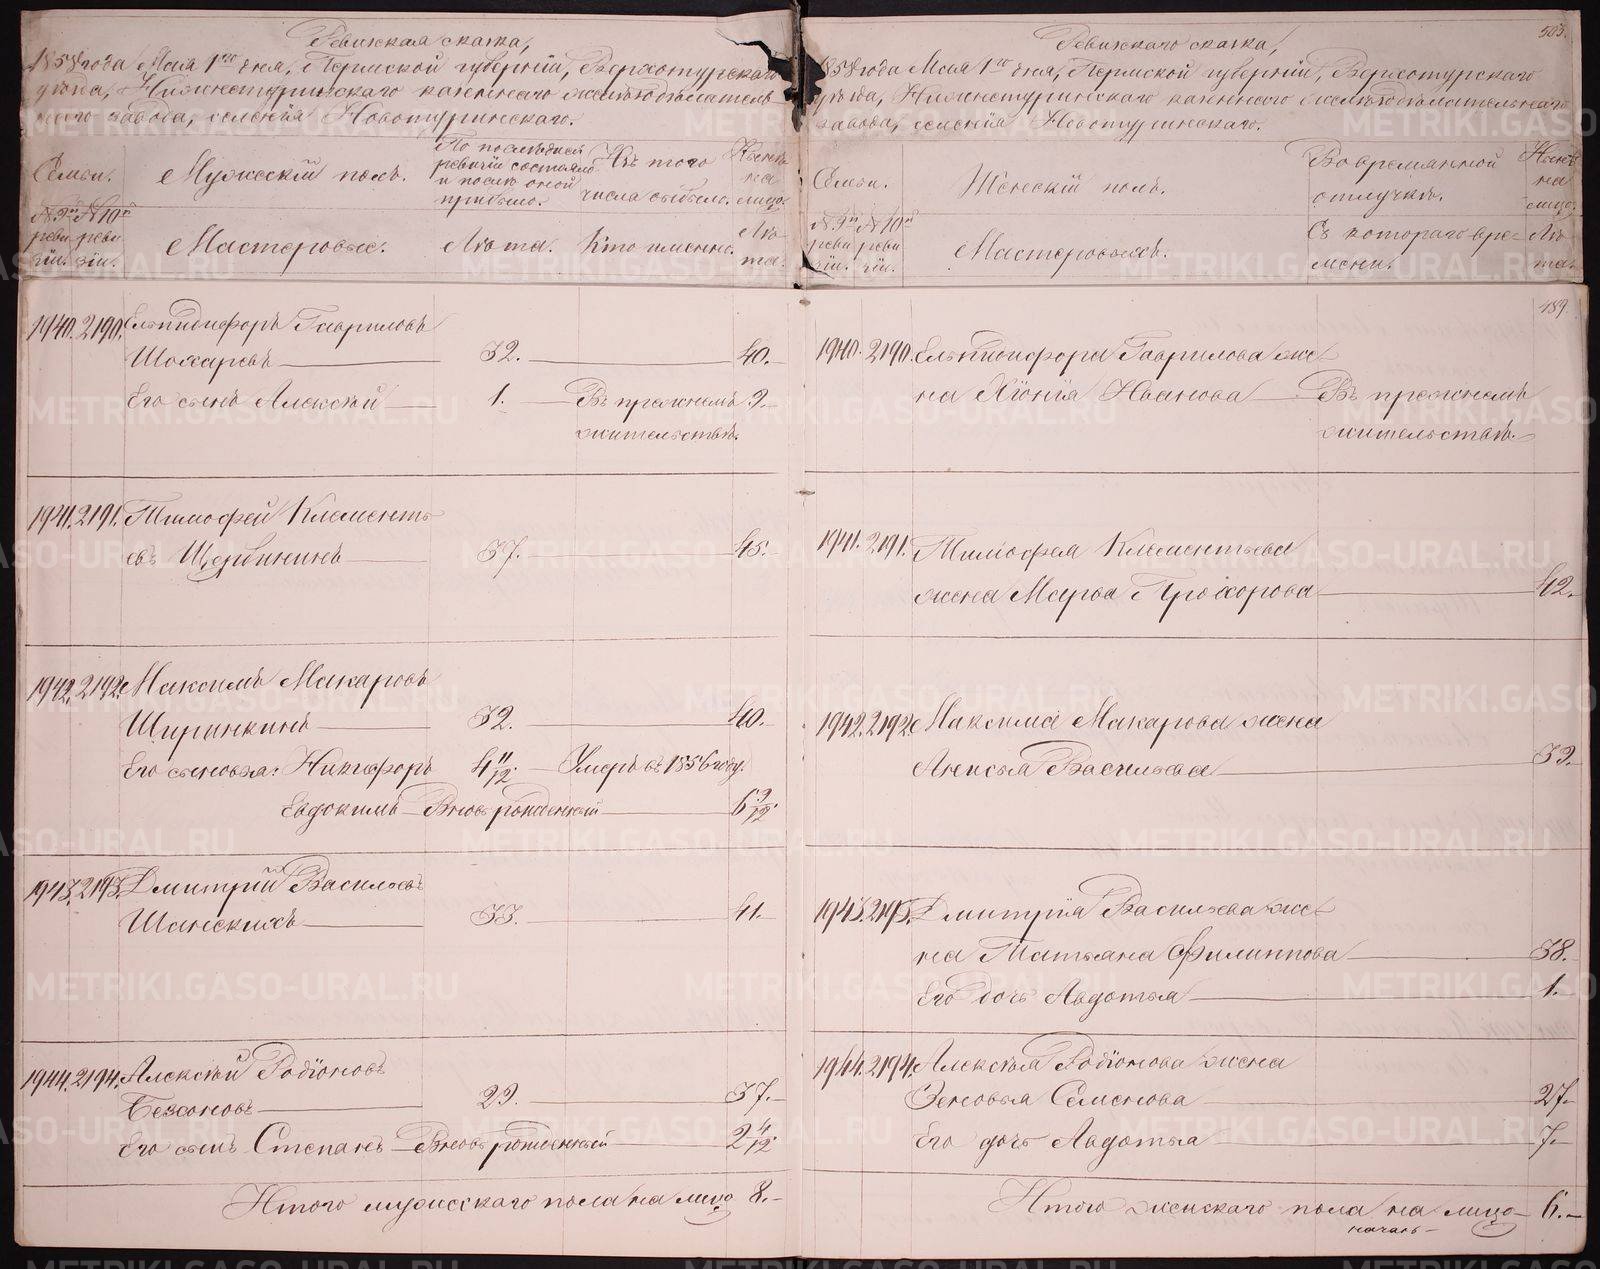 Ревизская сказка,
1858 года Мая 1го дня, Пермской губернiи, Верхотурскаго
уѣзда, Нижнетуринскаго казеннаго желѣзодѣлатель-
наго завода, селенiя Новотуринскаго.
Семьи.
Мужескiй полъ.
По послѣдней
ревизiи состояло
и послѣ оной
прибыло.
Изъ того
числа выбыло.
Нынѣ
на
лицо.
№ 9й № 10й
реви реви
зiи. зiи.
Мастеровые.
Лѣта.
Кто именно.
Лѣ
та.
1940. 2190. Ельпидифоръ Гавриловъ
32. 40.
Его сынъ Алексѣй 1. Въ прежнемъ 9.
жительствѣ.
1941. 2191. Тимофей Клементь
евъ 37. 45.
1942. 2192. Максимъ Макаровъ
Ширинкинъ 32. 40.
Его сыновья: Никифоръ 4 11/12. Умеръ въ 1856 году.
Евдокимъ Вновь рожденный 6 9/12.
1943. 2193. Дмитрiй Васильевъ
Шанскихъ 33. 41.
1944. 2194. Алексѣй Родiоновъ
29. 37.
Его сынъ Степанъ Вновь рожденный 2 4/12.
Итого мужескаго пола на лицо 8.
503.
Ревизская сказка,
1858 года Мая 1го дня, Пермской губернiи, Верхотурскаго
уѣзда, Нижнетуринскаго казеннаго желѣзодѣлательнаго
завода, селенiя Новотуринскаго.
Семьи.
Женскiй полъ.
Во временной
отлучкѣ.
Нынѣ
на
лицо.
№ 9й № 10й
реви реви
зiи. зiи.
Мастеровыхъ.
Съ котораго вре-
мени.
Лѣ
та.
489.
1940. 2190. Ельпидифора Гаврилова же
на Хiонiя Иванова Въ прежнемъ
жительствѣ.
1941. 2191. Тимофея Клементьева
жена Марья Прохорова 42.
1942. 2192. Максима Макарова жена
Васильева 39.
1943. 2193. Дмитрiя Васильева же
на Татьяна Филиппова 38.
Его дочь Авдотья 1.
1944. 2194. Алексѣя Родiонова жена
Зеновья Семенова 27.
Его дочь Авдотья 7.
Итого женскаго пола на лицо 6.
METRIKI.GASO-URAL.RU